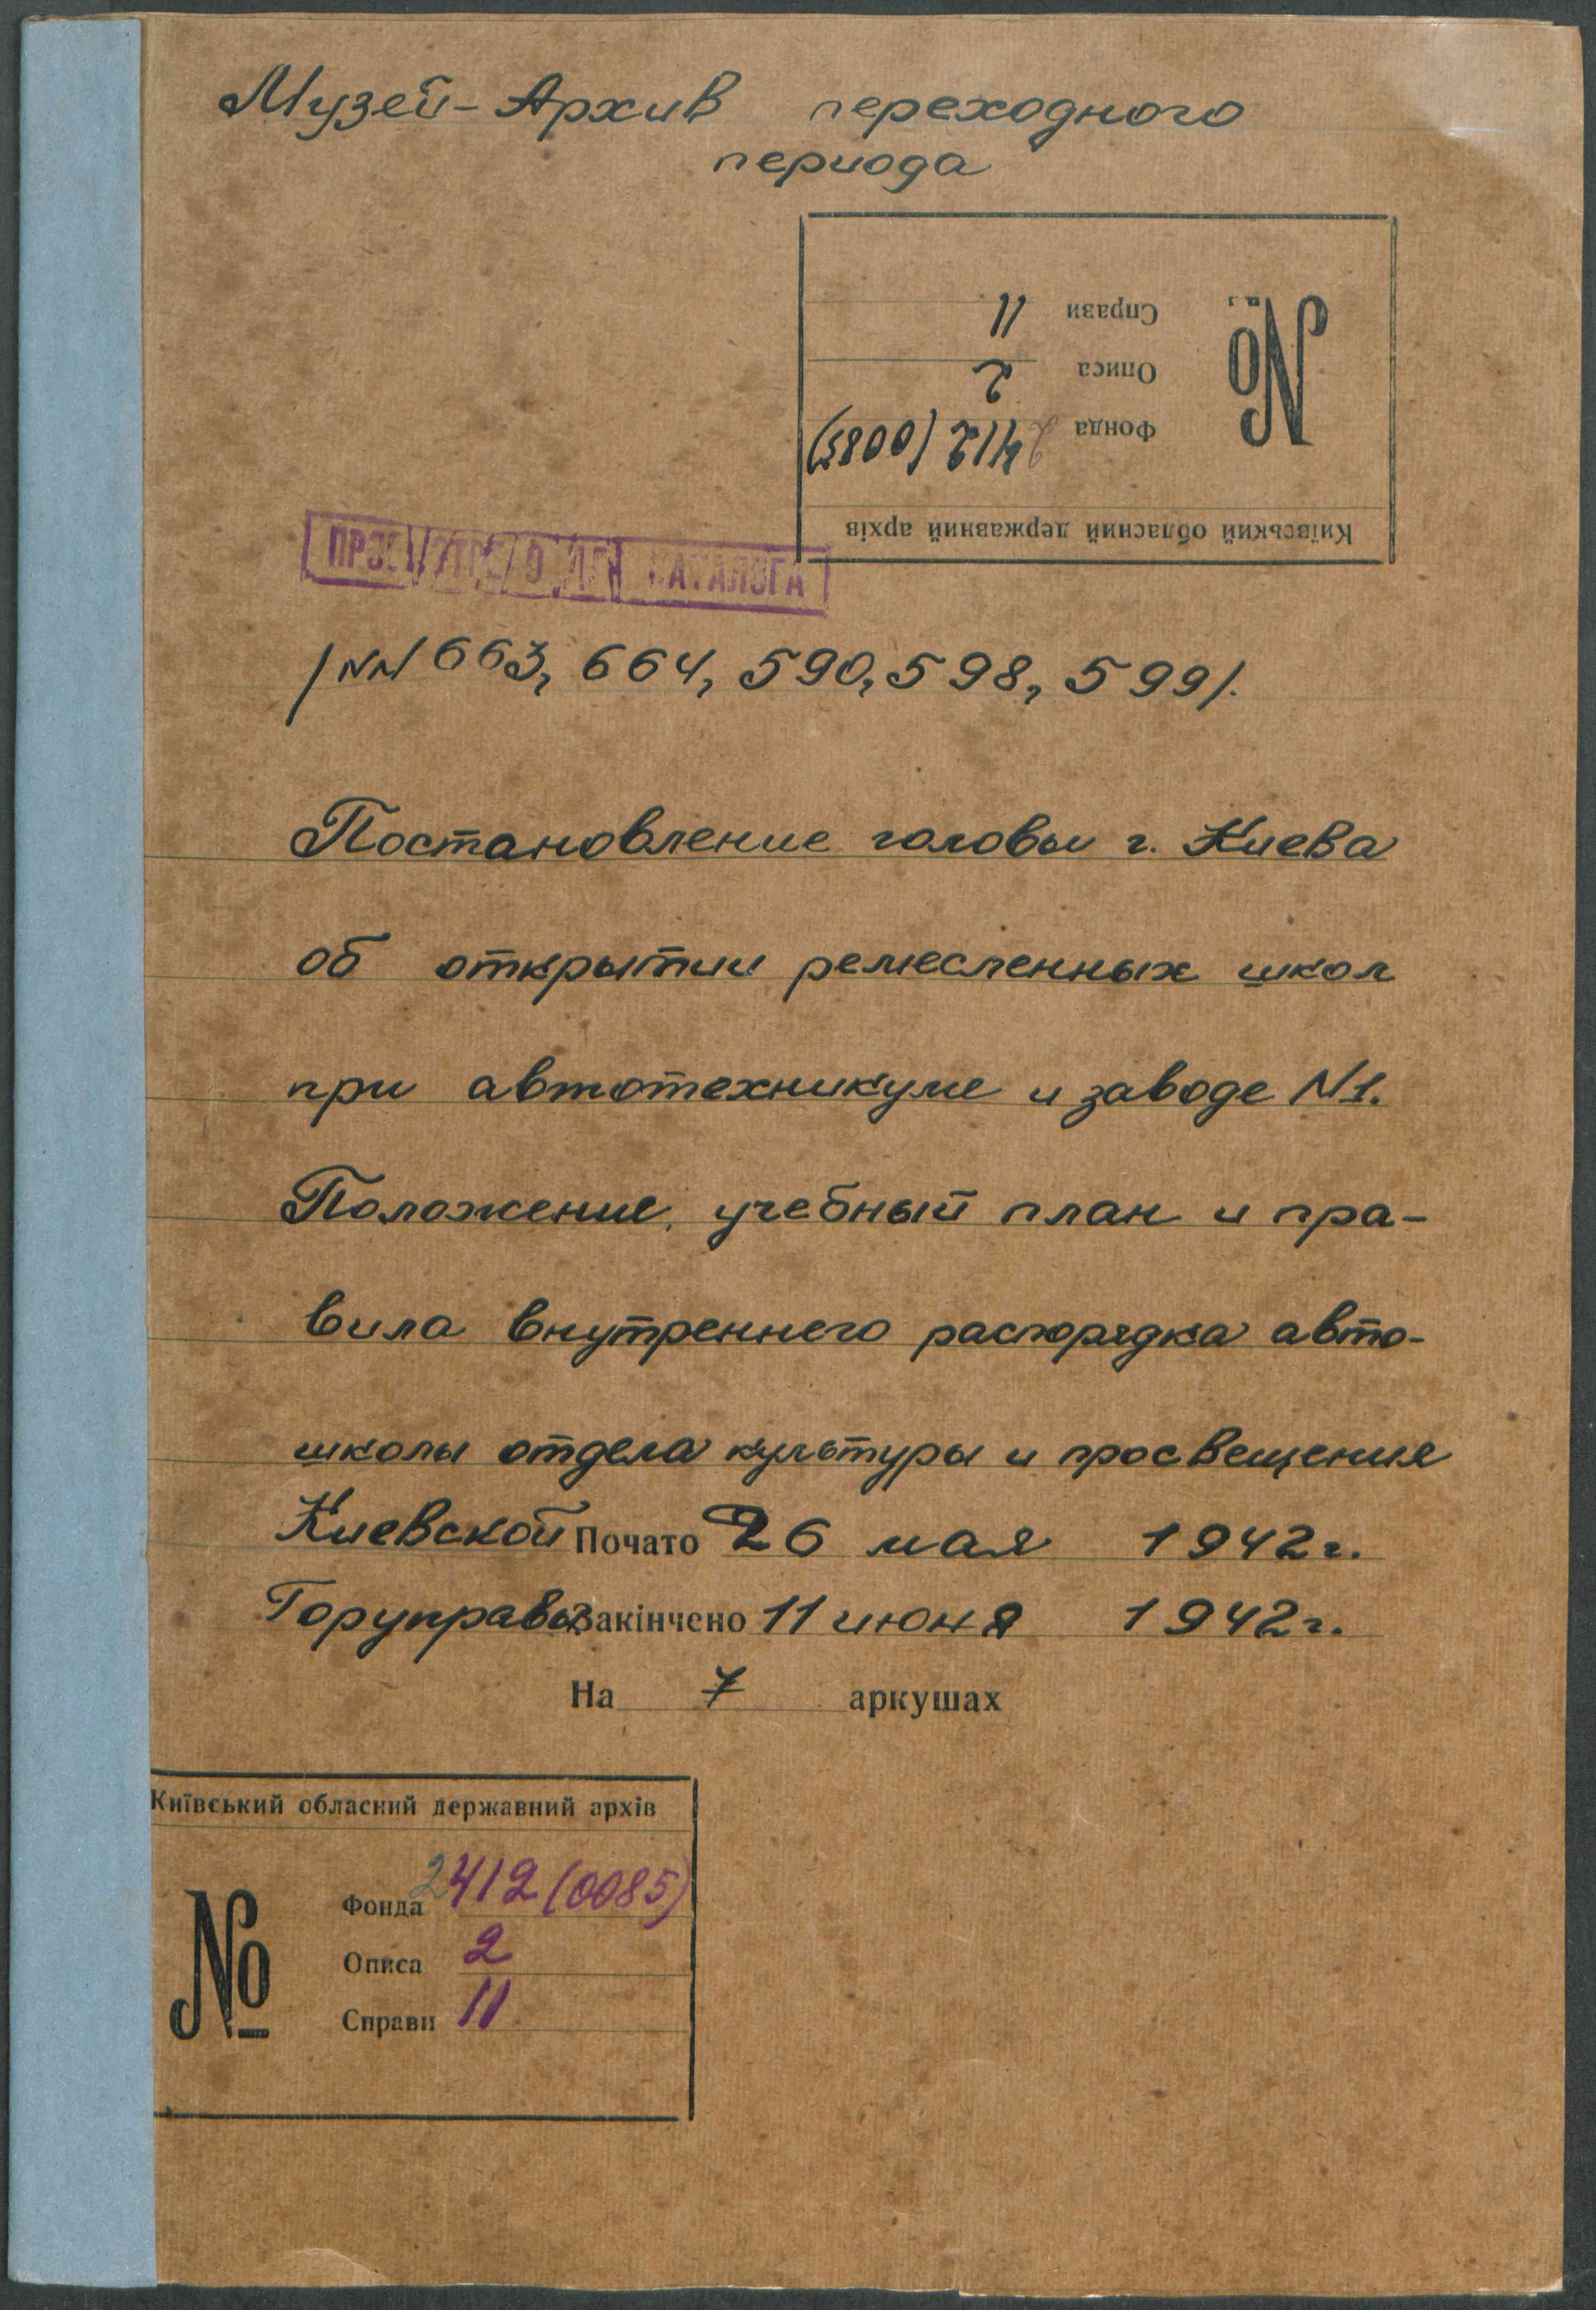 Музей-Архив переходного
периода
Київський обласний державний архів
№
Фонда 2412 (0085)
Описа 2
Справи 11
КАТАЛОГА
/NN 663, 664, 590, 598, 599/.
Постановление головы г. Киева
об открытии ремесленных школ
при автотехникуме и заводе N1.
Положение, учебный план и пра-
вила внутреннего распорядка авто-
школы отдела культуры и просвещения
Киевской Почато 26 мая 1942 г.
Горуправы Закінчено 11 июня 1942 г.
На 7 аркушах
Київський обласний державний архів
№
Фонда 2412 (0085)
Описа 2
Справи 11